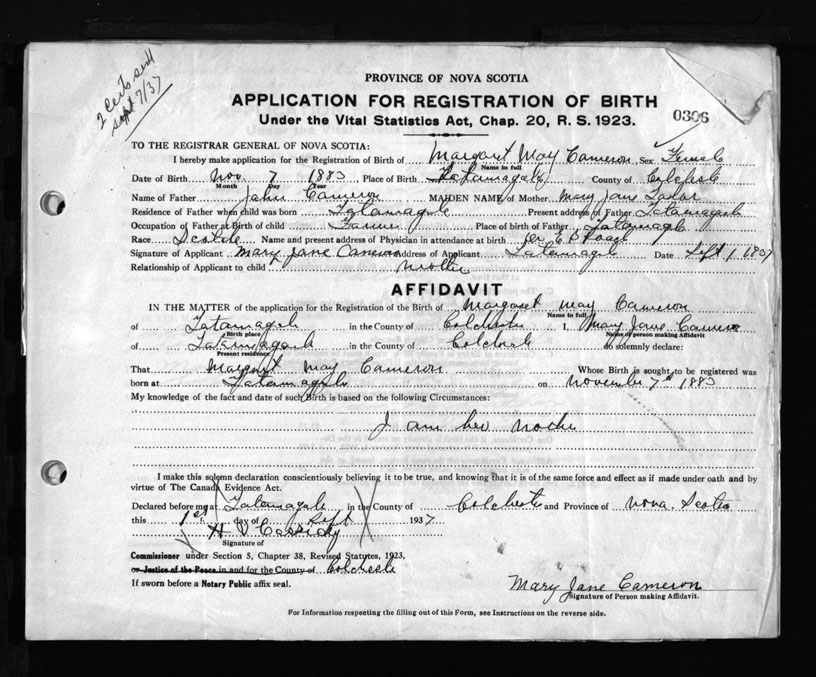 2 Certs sent
Sept 7/37
PROVINCE OF NOVA SCOTIA
APPLICATION FOR REGISTRATION OF BIRTH
Under the Vital Statistics Act, Chap. 20, R. S. 1923.
0306
TO THE REGISTRAR GENERAL OF NOVA SCOTIA:
I hereby make application for the Registration of Birth of Margaret May Cameron Sex Female
Name in full
Date of Birth Nov. 7 1883 Place of Birth Tatamagouche County of Colchester
Month Day Year
Name of Father John Cameron MAIDEN NAME of Mother Mary Jane
Residence of Father when child was born Tatamagouche Present address of Father Tatamagouche
Occupation of Father at Birth of child Farmer Place of birth of Father Tatamagouche
Race Scotch Name and present address of Physician in attendance at birth Dr. E B Roach
Signature of Applicant Mary Jane Cameron Address of Applicant Tatamagouche Date Sept 1 1937
Relationship of Applicant to child Mother
AFFIDAVIT
IN THE MATTER of the application for the Registration of the Birth of Margaret May Cameron
Name in full
of Tatamagouche in the County of Colchester I, Mary Jane Cameron
Birth place Name of person making Affidavit
of Tatamagouche in the County of Colchester do solemnly declare:
Present residence
That Margaret May Cameron Whose Birth is sought to be registered was
born at Tatamagouche on November 7th 1883
My knowledge of the fact and date of such Birth is based on the following Circumstances:
I am her Mother
I make this solemn declaration conscientiously believing it to be true, and knowing that it is of the same force and effect as if made under oath and by
virtue of The Canada Evidence Act.
Declared before me at Tatamagouche in the County of Colchester and Province of Nova Scotia
this 1st day of Sept 1937
H V Cassidy
Signature of
Commissioner under Section 5, Chapter 38, Revised Statutes, 1923,
or Justice of the Peace in and for the County of Colchester
If sworn before a Notary Public affix seal.
Mary Jane Cameron
Signature of Person making Affidavit.
For Information respecting the filling out of this Form, see Instructions on the reverse side.